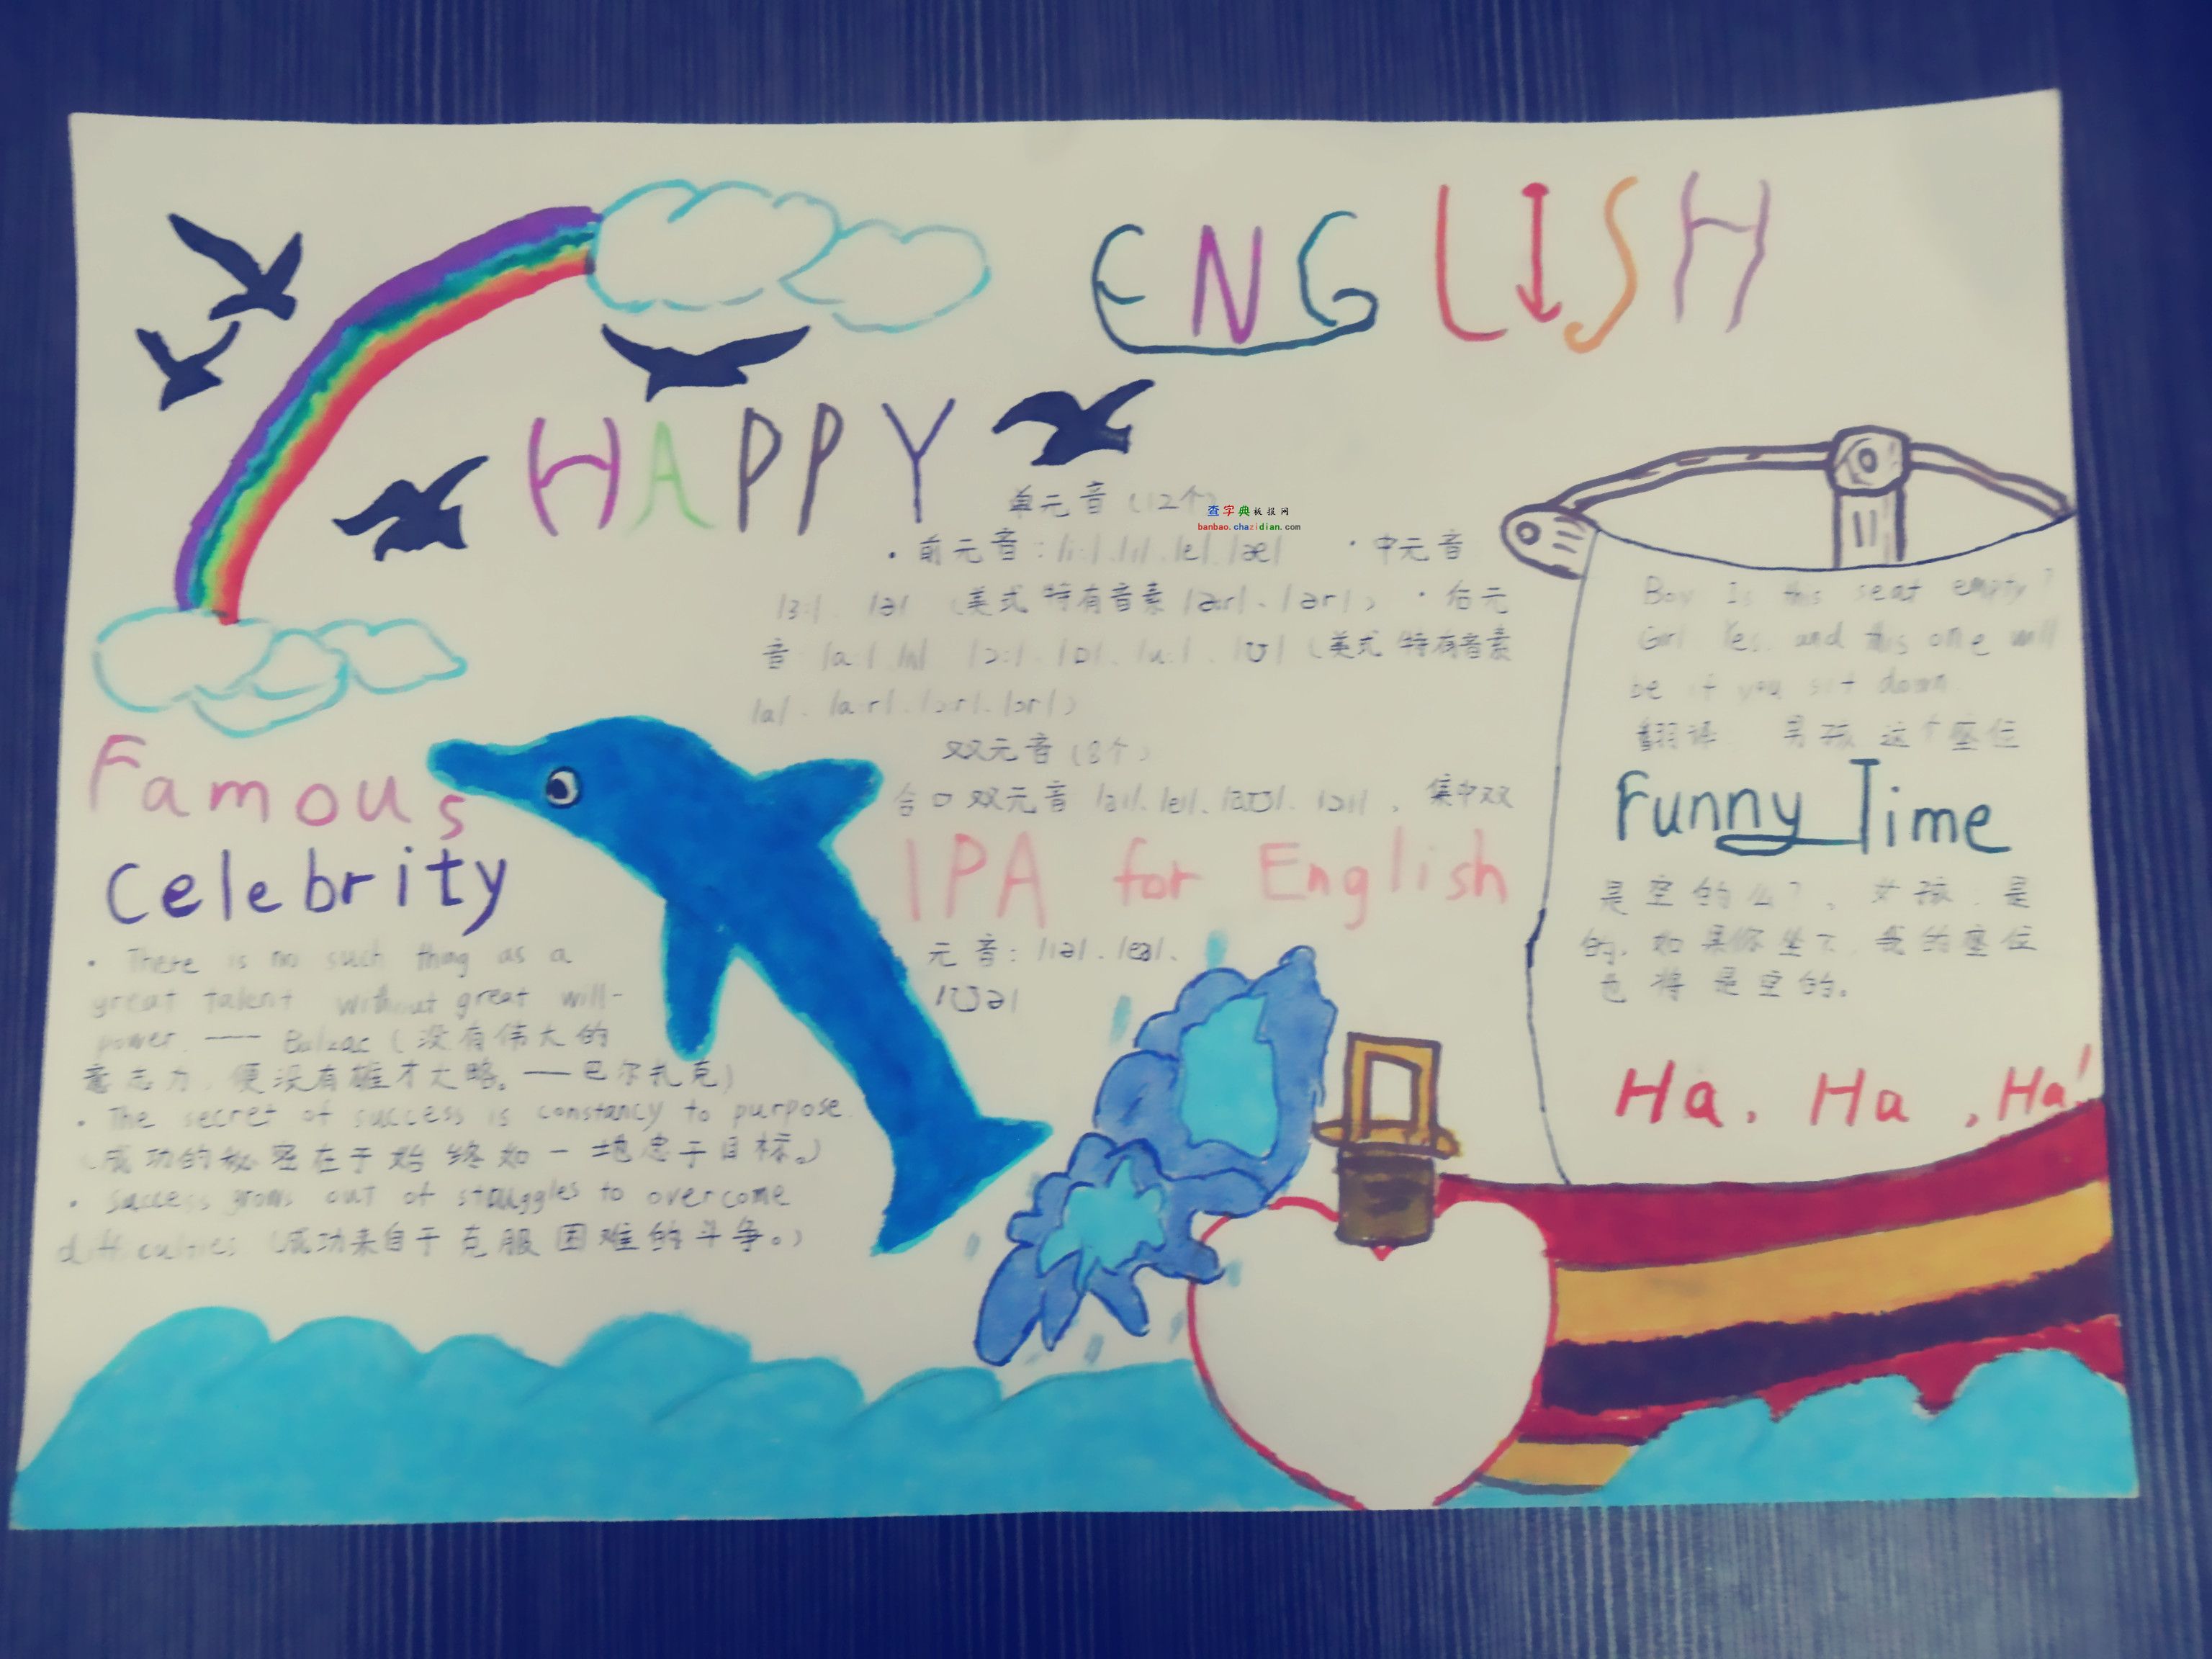 ENGLISH
HAPPY
单元音（12个）
查字典板报网
banbao.chazidian.com
·前元音：/i:/./ɪ/./e/./æ/ ·中元音
/ɜ:/ /ə/ （美式特有音素/ɜr/、/ər/）·后元
音 /ɑ:/./ʌ/ /ɔ:/./ɒ/./u:/./ʊ/（美式特有音素
/a/./ɑ:r/./ɔ:r/./ɔr/）
双元音（8个）
合口双元音 /aɪ/./eɪ/./aʊ/./ɔɪ/、集中双
IPA for English
元音：/ɪə/./eə/、
/ʊə/
Famous
Celebrity
· There is no such thing as a
great talent without great will-
power. —— Balzac（没有伟大的
意志力，便没有雄才大略。——巴尔扎克）
· The secret of success is constancy to purpose.
（成功的秘密在于始终如一地忠于目标。）
· Success grows out of struggles to overcome
difficulties（成功来自于克服困难的斗争。）
Boy Is this seat empty?
Girl Yes, and this one will
be if you sit down
翻译 男孩 这个座位
Funny Time
是空的么?。女孩：是
的，如果你坐下，我的座位
也将是空的。
Ha, Ha, Ha!